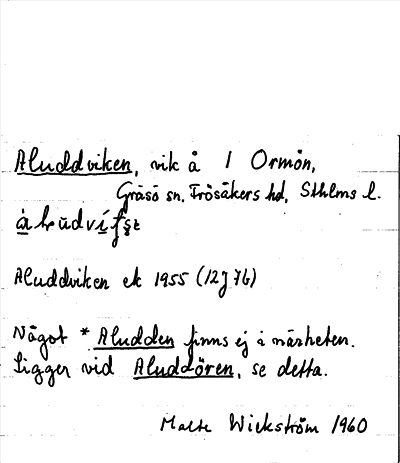 Aluddviken, vik å 1 Ormön,
Gräsö sn, Frösåkers hd, Sthlms l.
Aluddviken ek 1955 (12J 7b)
Något *Aludden finns ej i närheten.
Ligger vid Aluddören, se detta.
Malte Wickström 1960